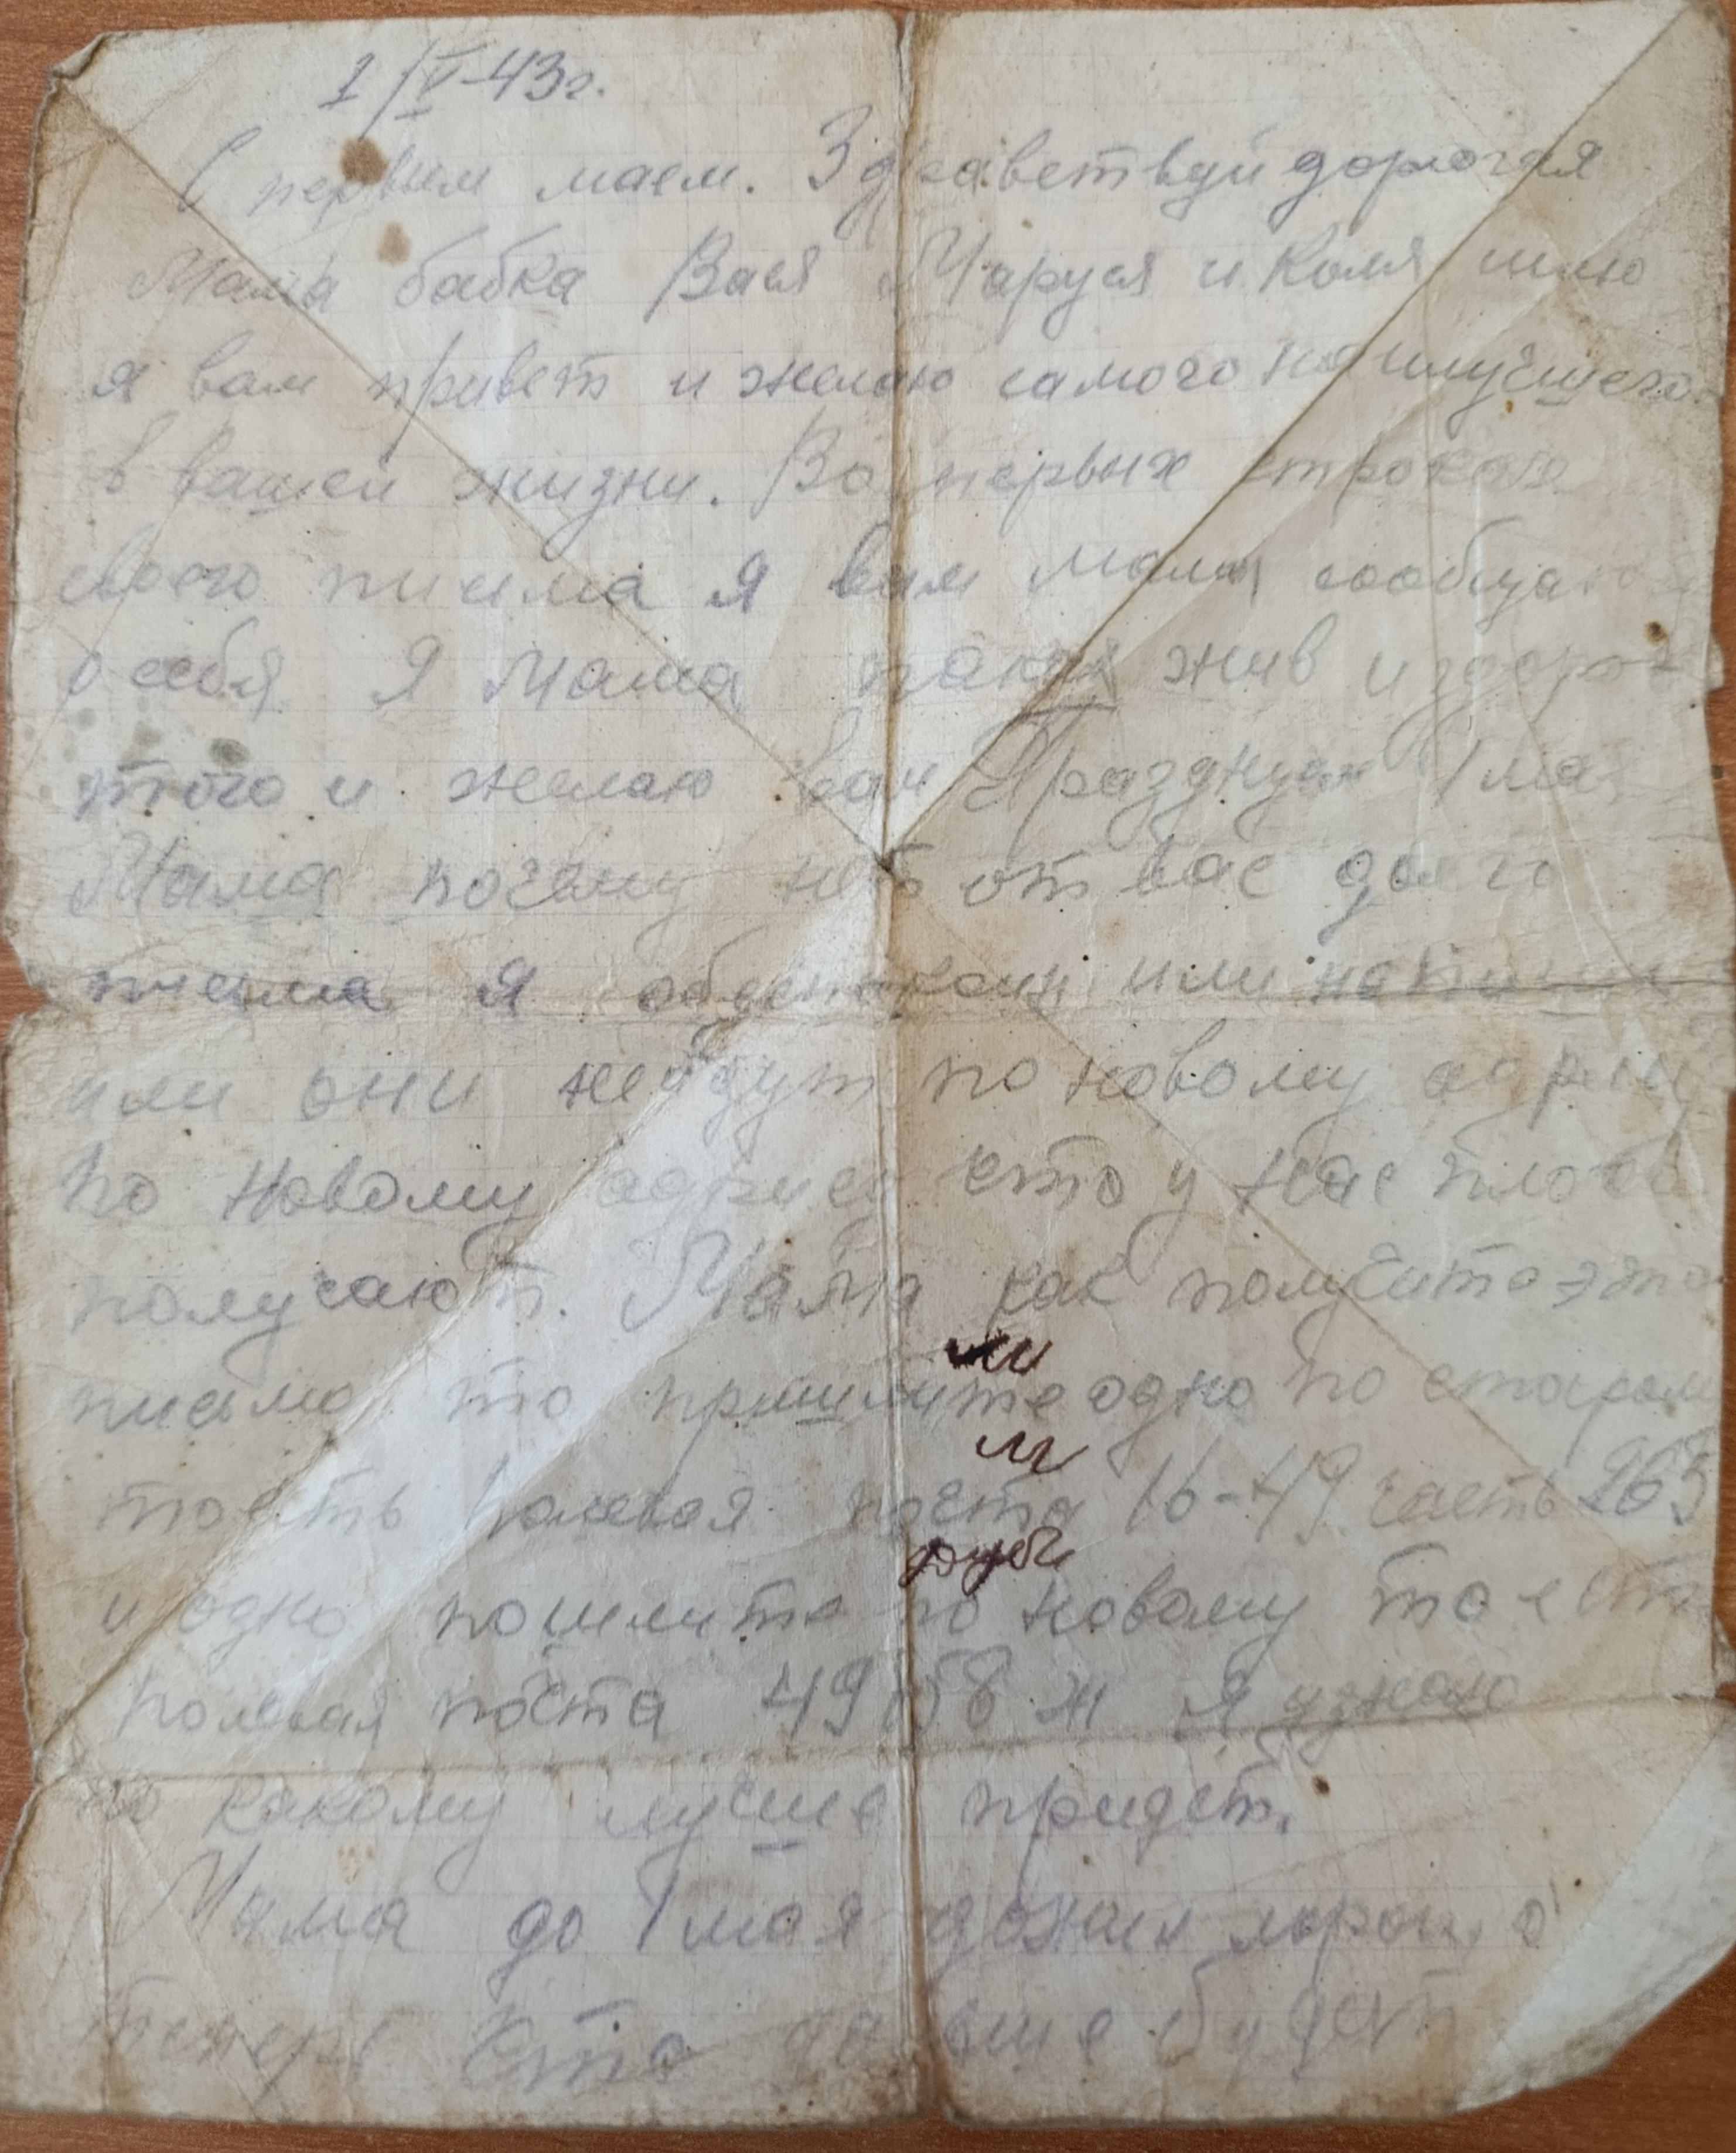 1/V-43г.
С первым маем. Здравствуй дорогая
Мама бабка Вася Маруся и Коля шлю
я вам привет и желаю самого наилучшего
в вашей жизни. Во первых строках
своего писма я вам мама сообщаю
о себя Я Мама пока жив и здоров
того и желаю вам Праздную 1 мая
Мама почему нет от вас долго
писма я
или они не идут по новому адрису
по новому адрису что у нас плохо
получают. Мама как получите это
письмо то пришлите одно по старому
ми
м
тоесть полевая почта 16-49 часть 263
и одно пошлите по новому то есть
полевая почта 49058 ж я узнаю
по какому лучше придёт.
Мама до 1 мая дожил
теперь что дальше будет